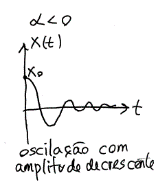 α<0
x(t)
x₀
t
oscilação com
amplitude decrescente